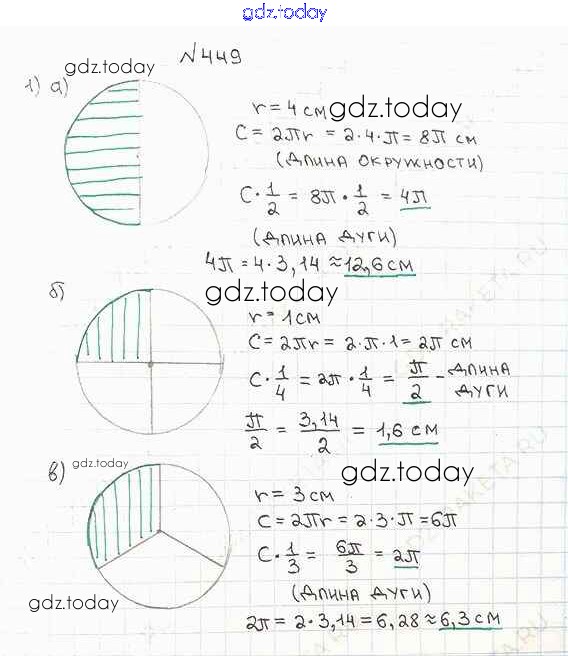 gdz.today
№449
gdz.today
1) а)
r = 4 см gdz.today
C = 2πr = 2·4·π = 8π см
(длина окружности)
C · 1/2 = 8π · 1/2 = 4π
(длина дуги)
4π = 4·3,14 ≈ 12,6 см
б)
gdz.today
r = 1 см
C = 2πr = 2·π·1 = 2π см
C · 1/4 = 2π · 1/4 = π/2 - длина дуги
π/2 = 3,14/2 = 1,6 см
в)
gdz.today
gdz.today
r = 3 см
C = 2πr = 2·3·π = 6π
C · 1/3 = 6π/3 = 2π
(длина дуги)
gdz.today
2π = 2·3,14 = 6,28 ≈ 6,3 см